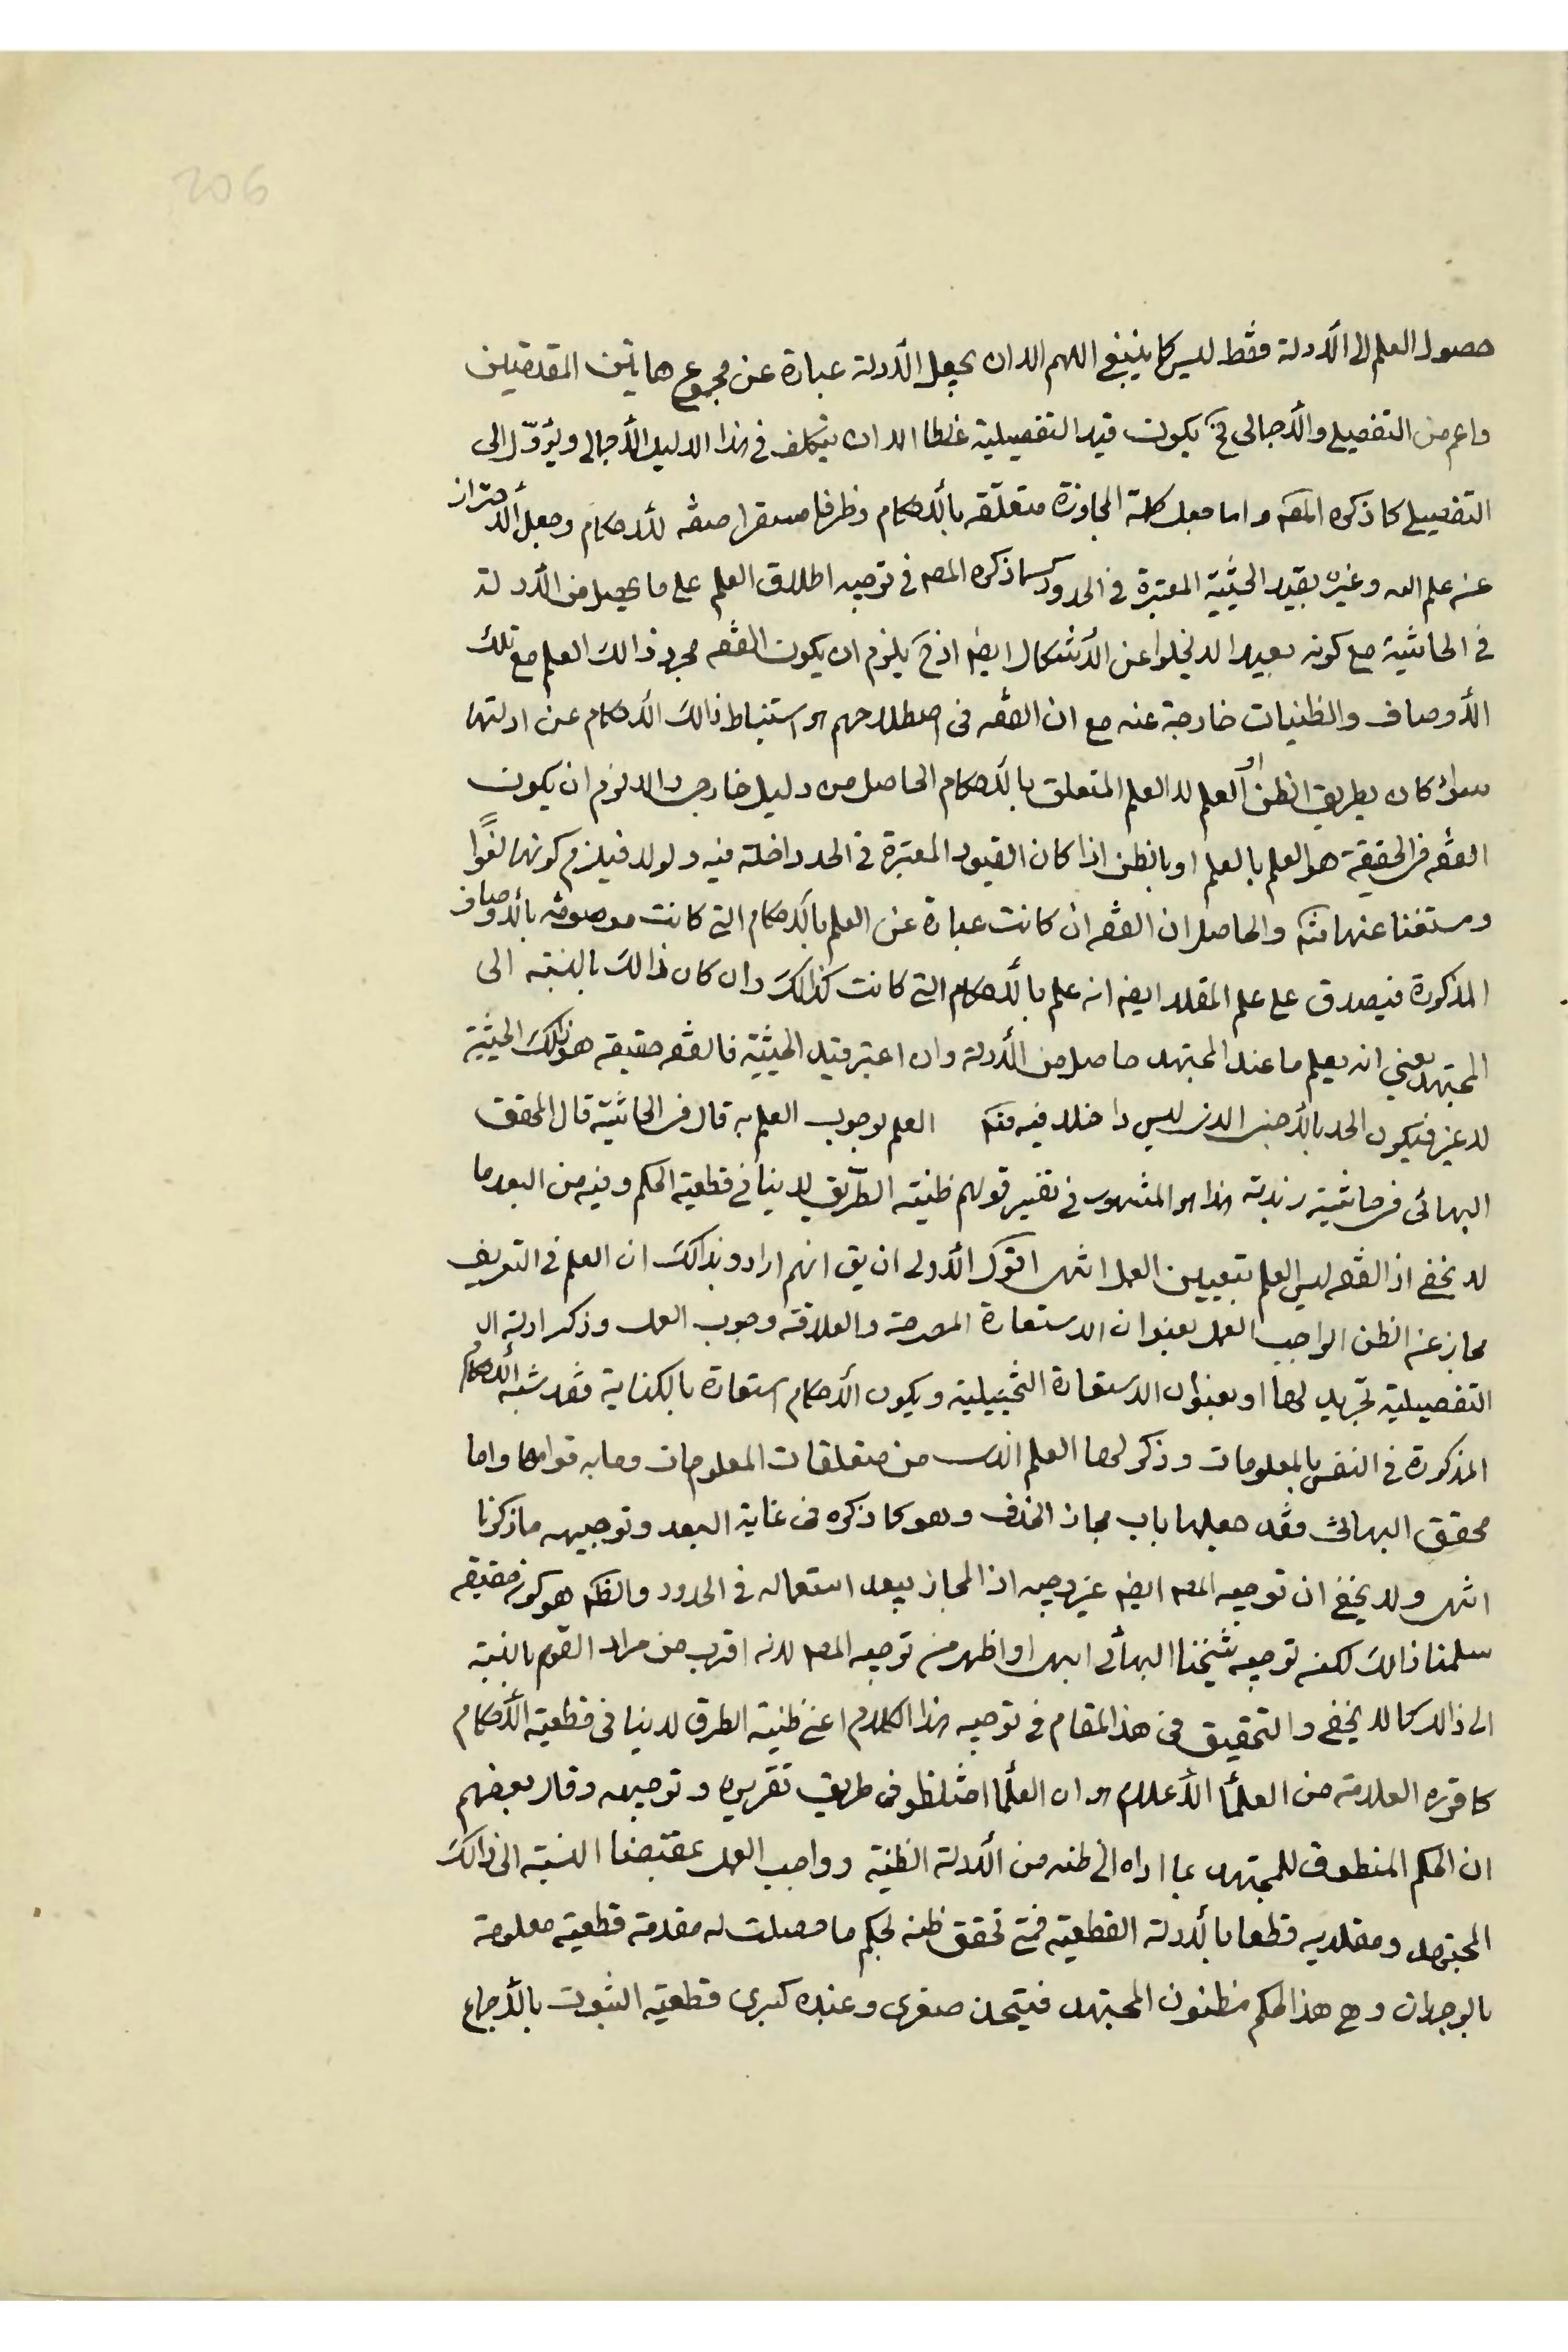 206
حصول العلم الى الأدولة فقط ليس كما ينبغى اللهم الا ان يجعل الأدولة عبارة عن مجموع هاتين المقدمتين
واعم من التفصيلى والأجمالى فح يكون قيد التفصيلية غلطا الا ان يتكلف فى هذا الدليل الأجمالى ويؤوّل الى
التفصيلى كما ذكره المصم واما جعل كلمة المجاوزة متعلّقه بالأحكام وظرفا مستقرا صفه للأحكام وجعل الأحتراز
عن علم الله وغيره بقيد الحيثية المعتبرة فى الحدود كما ذكره المصم فى توجيه اطلاق العلم على ما يحصل من الأدولة
فى الحاشية مع كونه بعيدا لا يخلوا عن الأشكال ايضا اذح يلزم ان يكون الفقه مجرد ذالك العلم مع تلك
الأوصاف والظنيات خارجة عنه مع ان الفقه فى اصطلاحهم هو استنباط ذالك الأحكام عن ادلتها
سواء كان بطريق الظن او العلم لا العلم المتعلق بالأحكام الحاصل من دليل خارجى والا لزم ان يكون
الفقه فى الحقيقة هو العلم بالعلم او بالظن اذا كان القيود المعتبرة فى الحد داخلة فيه ولولا فيلزم كونها لغوًا
ومستغنا عنها فتم والحاصل ان الفقه ان كانت عبارة عن العلم بالأحكام التى كانت موصوفه بالأوصاف
المذكورة فيصدق على علم المقلد ايضا انه علم بالأحكام التى كانت كذالك وان كان ذالك بالنسبة الى
المجتهد يعنى انه يعلم ما عند المجتهد حاصل من الأدولة وان اعتبر قيد الحيثية فالفقه حقيقه هو ذالك الحيثية
لا غير فيكون الحد بالأجنبى الذى ليس داخلا فيه فتم العلم بوجوب العلم به قال فى الحاشية قال المحقق
البهائى فى حاشية زبدته هذا هو المشهور فى تفسير قولهم ظنيته الطّريق لا ينافى قطعية الحكم وفيه من البعد ما
لا يخفى اذ الفقه ليس العلم بتعيين العمل انتهى اقول الأولى ان يق انهم ارادو بذالك ان العلم فى التعريف
مجاز عن الظن الواجب العمل بعنوان الاستعارة المصرحة والعلاقة وجوب العمل وذكر ادلته ال
التفصيلية تجريد لها او بعنوان الاستعارة التخييلية ويكون الأحكام استعارة بالكناية فقد شبه الأحكام
المذكورة فى النفس بالمعلومات وذكر لها العلم الذى من متعلقات المعلومات ومابه قوامها واما
محقق البهائى فقد جعلها باب مجاز الحذف وهو كما ذكره فى غاية البعد وتوجيهه ما ذكرنا
انتهى ولا يخفى ان توجيه المصم ايضا غير وجيه اذ المجاز يبعد استعماله فى الحدود والظم هو كونه حقيقه
سلمنا ذالك لكن توجيه شيخنا البهائى ابهى او اظهر من توجيه المصم لانه اقرب من مراد القوم بالنسبة
الى ذالك كما لا يخفى والتحقيق فى هذ المقام فى توجيه هذا الكلام اعنى ظنية الطرق لا ينافى قطعية الأحكام
كما قرره العلامة من العلمأ الأعلام هو ان العلمأ اختلطو فى طريق تقريره وتوجيهه وقال بعضهم
ان الحكم المنطوق للمجتهد بما اداه الى ظنه من الأدلة الظنية وواجب العمل بمقتضا النسبة الى ذالك
المجتهد ومقلديه قطعا بالأدولة القطعية فمتى تحقق ظنه لحكم ما حصلت له مقدمة قطعية معلومة
بالوجدان وهى هذ الحكم مظنون المجتهد فيتحذ صغرى وعنده كبرى قطعية الثبوت بالأجماع